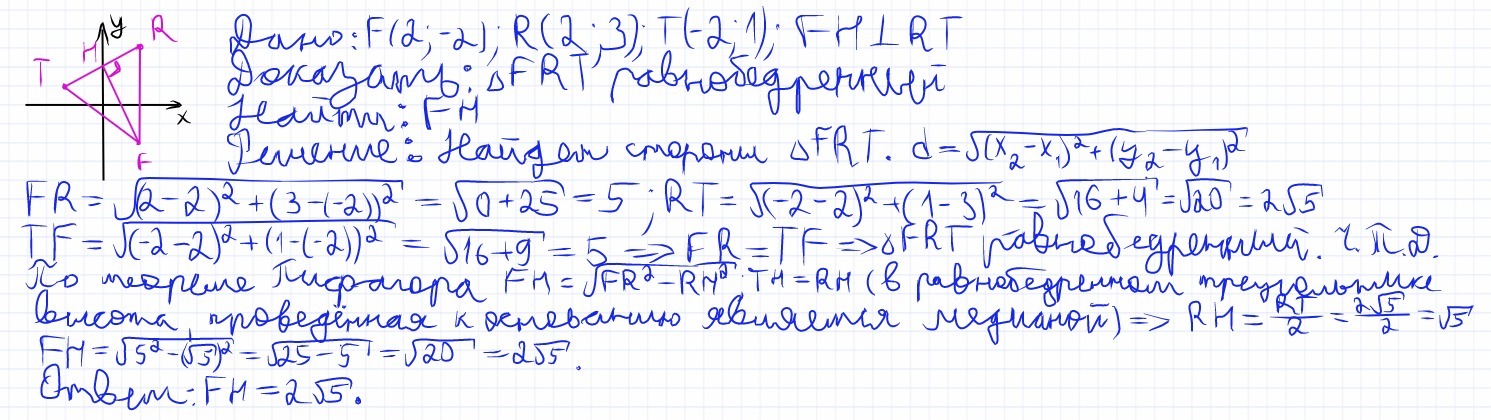 y R H T x F
Дано: F(2;-2); R(2;3); T(-2;1); FH⊥RT
Доказать: △FRT равнобедренный
Найти: FH
Решение: Найдем стороны △FRT. d=√((x₂-x₁)²+(y₂-y₁)²)
FR=√((2-2)²+(3-(-2))²)=√(0+25)=5; RT=√((-2-2)²+(1-3)²)=√(16+4)=√20=2√5
TF=√((-2-2)²+(1-(-2))²)=√(16+9)=5 => FR=TF => △FRT равнобедренный. Ч.Т.Д.
По теореме Пифагора FH=√(FR²-RH²). TH=RH (в равнобедренном треугольнике
высота, проведённая к основанию является медианой) => RH=RT/2=2√5/2=√5
FH=√(5²-(√5)²)=√(25-5)=√20=2√5.
Ответ: FH=2√5.